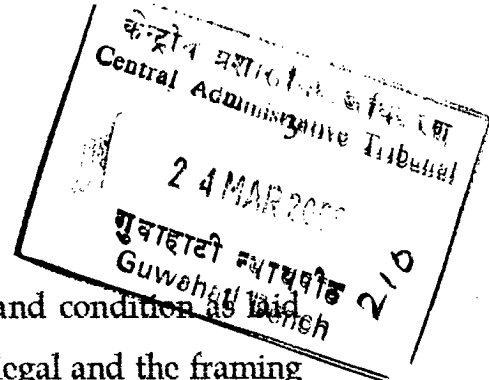 केन्द्रीय
Central Administrative Tribunal
24 MAR
गुवाहाटी न्यायपीठ
Guwahati Bench
210
and condition as laid
legal and the framing